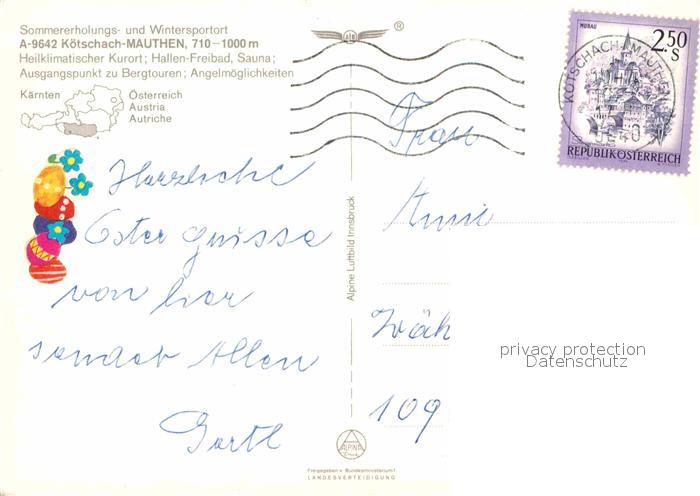 Sommererholungs- und Wintersportort
A-9642 Kötschach-MAUTHEN, 710–1000 m
Heilklimatischer Kurort; Hallen-Freibad, Sauna;
Ausgangspunkt zu Bergtouren; Angelmöglichkeiten
Kärnten
Österreich
Austria
Autriche
Herzliche
Ostergrüsse
von hier
sendet Allen
Gertl
Alpine Luftbild Innsbruck
®
ALPINE
Freigegeben v. Bundesministerium f.
LANDESVERTEIDIGUNG
MURAU
2.50
S
REPUBLIK ÖSTERREICH
KÖTSCHACH-MAUTHEN
Frau
Anni
Wäh
109
privacy protection
Datenschutz